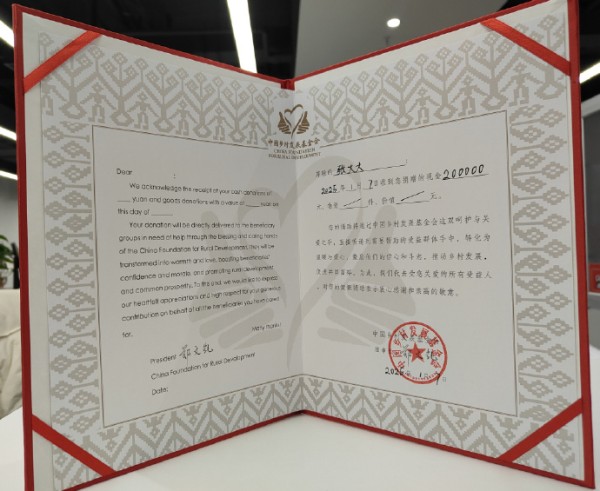 Dear :
We acknowledge the receipt of your cash donation of
yuan and goods donations with a value of yuan on
this day of
Your donation will be directly delivered to the beneficiary
groups in need of help through the blessing and caring hands
of the China Foundation for Rural Development, then will be
transformed into warmth and love, boosting beneficiaries'
confidence and morale, and promoting rural development
and common prosperity. To this end, we would like to express
our heartfelt appreciations and high respect for your generous
contribution on behalf of all the beneficiaries you have cared
for.
Many thanks!
President
China Foundation for Rural Development
Date:
中国乡村发展基金会
CHINA FOUNDATION
FOR RURAL DEVELOPMENT
尊敬的 张大大
年 1 月 7 日收到您捐赠的现金 200000
元，物资 件，价值 元。
您的捐助将通过中国乡村发展基金会这双呵护与关
爱之手，直接传递到需要帮助的受益群体手中，转化为
温暖与爱心，
及共同富裕。为此，我们代表您关爱的所有受益人，
对您的慷慨捐赠表示衷心感谢和崇高的敬意。
中国乡村发展基金会